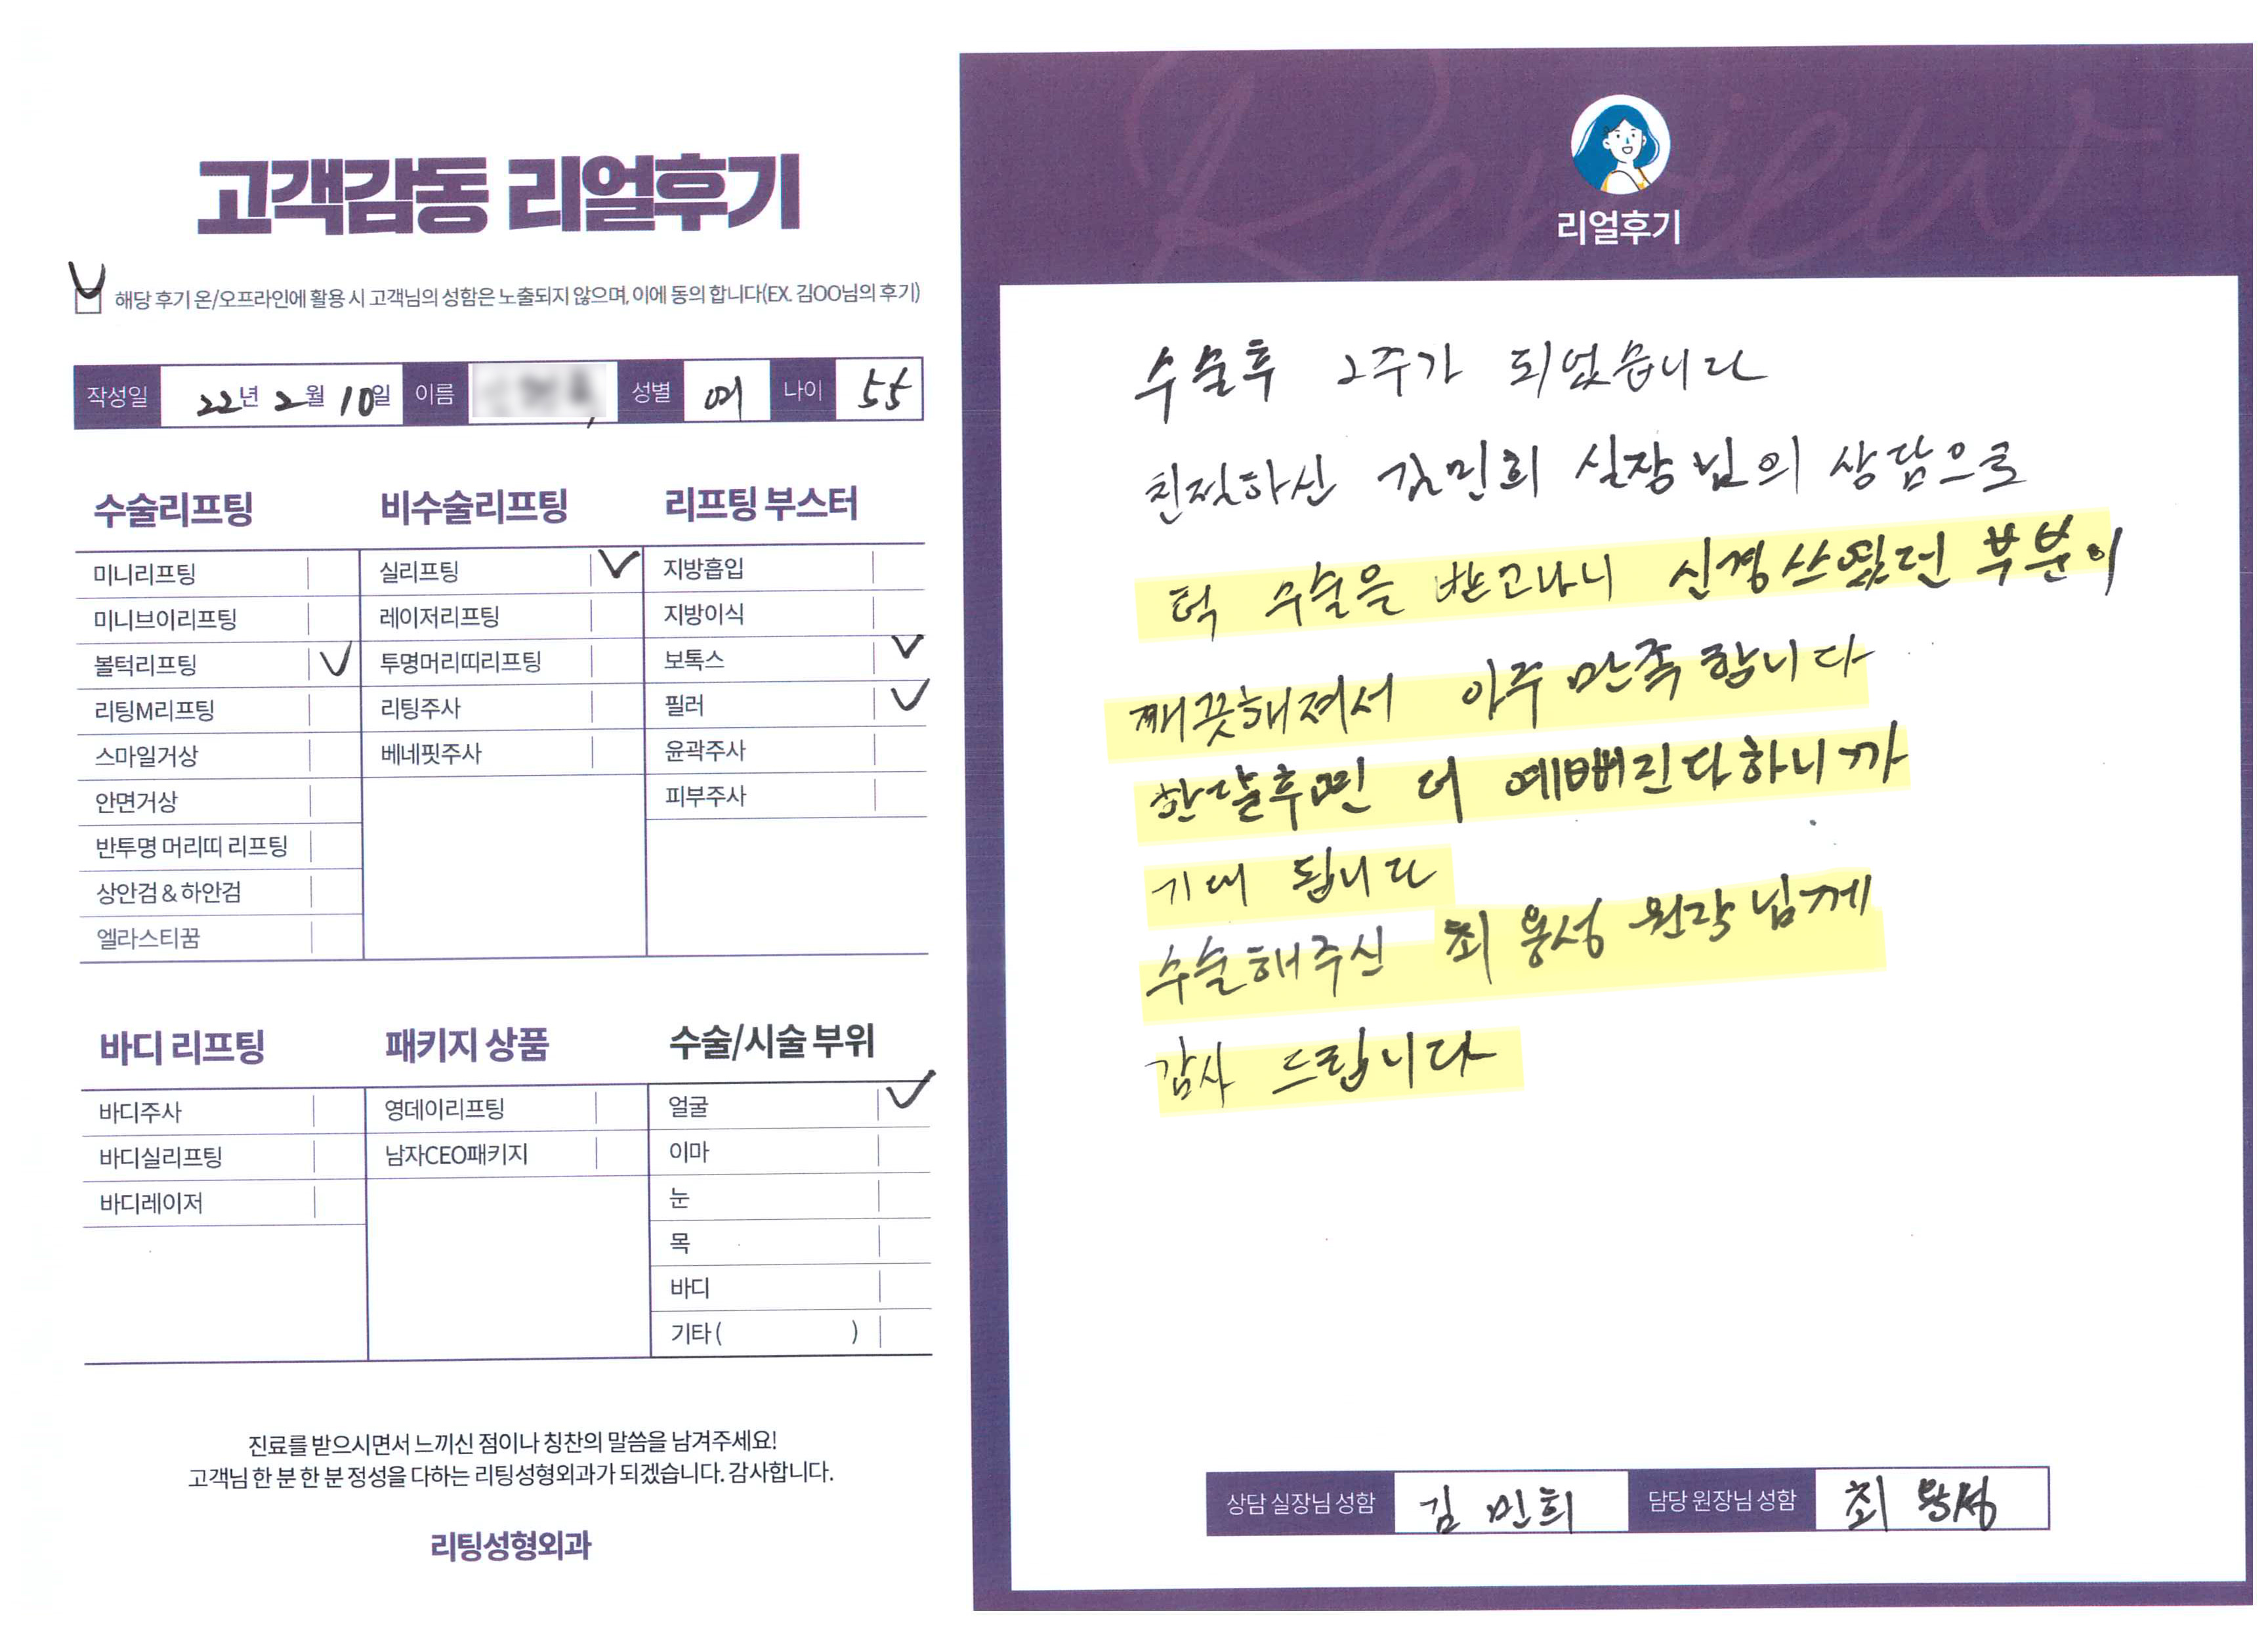 고객감동 리얼후기
해당 후기 온/오프라인에 활용 시 고객님의 성함은 노출되지 않으며, 이에 동의 합니다(EX. 김OO님의 후기)
작성일 22년 2월 10일 이름 성별 여 나이 55
수술리프팅
미니리프팅
미니브이리프팅
볼턱리프팅
리팅M리프팅
스마일거상
안면거상
반투명 머리띠 리프팅
상안검 & 하안검
엘라스티꿈
비수술리프팅
실리프팅
레이저리프팅
투명머리띠리프팅
리팅주사
베네핏주사
리프팅 부스터
지방흡입
지방이식
보톡스
필러
윤곽주사
피부주사
바디 리프팅
바디주사
바디실리프팅
바디레이저
패키지 상품
영데이리프팅
남자CEO패키지
수술/시술 부위
얼굴
이마
눈
목
바디
기타 ( )
진료를 받으시면서 느끼신 점이나 칭찬의 말씀을 남겨주세요!
고객님 한 분 한 분 정성을 다하는 리팅성형외과가 되겠습니다. 감사합니다.
리팅성형외과
Review
리얼후기
수술후 2주가 되었습니다
친절하신 김민희 실장님의 상담으로
턱 수술을 받고나니 신경쓰였던 부분이
깨끗해져서 아주 만족합니다
한달후면 더 예뻐진다하니까
기대 됩니다
수술해주신 최 원장님께
감사 드립니다
상담 실장님 성함 김 민희 담당 원장님 성함 최